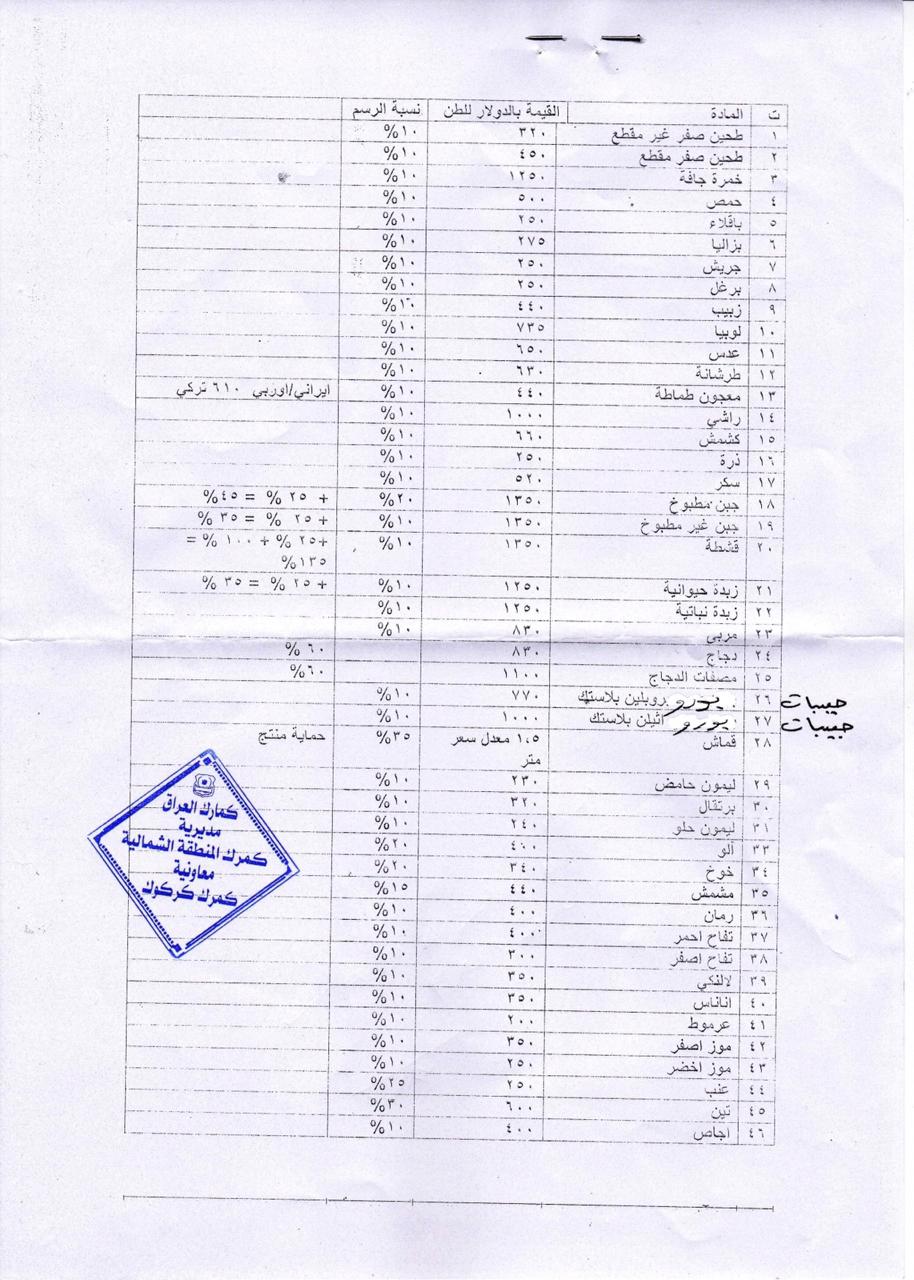 ت المادة القيمة بالدولار للطن نسبة الرسم
١ طحين صفر غير مقطع ٣٢٠ ١٠%
٢ طحين صفر مقطع ٤٥٠ ١٠%
٣ خمرة جافة ١٢٥٠ ١٠%
٤ حمص ٥٠٠ ١٠%
٥ باقلاء ٢٥٠ ١٠%
٦ بزاليا ٢٧٥ ١٠%
٧ جريش ٢٥٠ ١٠%
٨ برغل ٢٥٠ ١٠%
٩ زبيب ٤٤٠ ١٠%
١٠ لوبيا ٧٣٥ ١٠%
١١ عدس ٦٥٠ ١٠%
١٢ طرشانة ٦٣٠ ١٠%
١٣ معجون طماطة ٤٤٠ ١٠% ايراني/اوربي ٦١٠ تركي
١٤ راشي ١٠٠٠ ١٠%
١٥ كشمش ٦٦٠ ١٠%
١٦ ذرة ٢٥٠ ١٠%
١٧ سكر ٥٢٠ ١٠%
١٨ جبن مطبوخ ١٣٥٠ ٢٠% + ٢٥ % = ٤٥%
١٩ جبن غير مطبوخ ١٣٥٠ ١٠% + ٢٥ % = ٣٥ %
٢٠ قشطة ١٣٥٠ ١٠% +٢٥ % + ١٠٠ % =
١٣٥%
٢١ زبدة حيوانية ١٢٥٠ ١٠% + ٢٥ % = ٣٥ %
٢٢ زبدة نباتية ١٢٥٠ ١٠%
٢٣ مربى ٨٣٠ ١٠%
٢٤ دجاج ٨٣٠ ٦٠ %
٢٥ مصفات الدجاج ١١٠٠ ٦٠%
حبيبات ٢٦ روبلين بلاستك ٧٧٠ ١٠%
حبيبات ٢٧ اثيلن بلاستك ١٠٠٠ ١٠%
٢٨ قماش ١،٥ معدل سعر ٣٥% حماية منتج
متر
٢٩ ليمون حامض ٢٣٠ ١٠%
٣٠ برتقال ٣٢٠ ١٠%
٣١ ليمون حلو ٢٤٠ ١٠%
٣٣ الو ٤٠٠ ٢٠%
٣٤ خوخ ٣٤٠ ٢٠%
٣٥ مشمش ٤٤٠ ١٥%
٣٦ رمان ٤٠٠ ١٠%
٣٧ تفاح احمر ٤٠٠ ١٠%
٣٨ تفاح اصفر ٣٠٠ ١٠%
٣٩ لالنكي ٣٥٠ ١٠%
٤٠ اناناس ٣٥٠ ١٠%
٤١ عرموط ٢٠٠ ١٠%
٤٢ موز اصفر ٣٥٠ ١٠%
٤٣ موز اخضر ٢٥٠ ١٠%
٤٤ عنب ٢٥٠ ٢٥%
٤٥ تين ٦٠٠ ٣٠%
٤٦ اجاص ٤٠٠ ١٠%
كمارك العراق
مديرية
كمرك المنطقة الشمالية
معاونية
كمرك كركوك